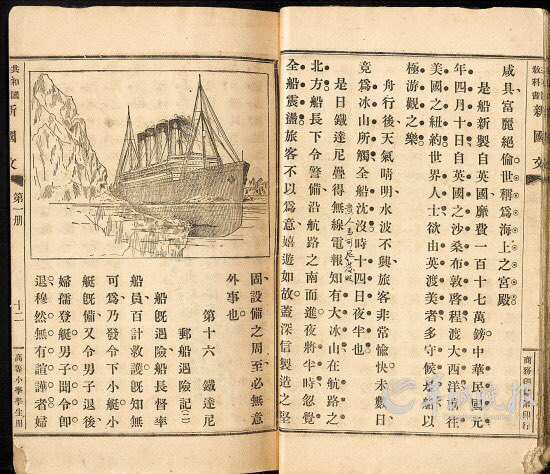 教科書 新國文
咸具富麗絕倫世稱爲海上之宮殿
是船新製自英國靡費一百十七萬鎊中華民國元
年四月十日自英國之沙桑布敦啓程渡大西洋前往
美國之紐約世界人士欲由英渡美者多守候是船以
極游觀之樂
舟行後天氣晴明水波不興旅客非常愉快未數日
竟爲冰山所觸全船沈沒時十四日夜半也
是日鐵達尼疊得無線電報知有大冰山在航路之
北方船長下令警備沿航路之南而進夜將半時忽覺
全船震盪旅客不以爲意嬉遊如故蓋深信製造之堅
固設備之周至必無意
外事也
第十六 鐵達尼
郵船遇險記(二)
船既遇險船長督率
船員百計救護既知無
可爲乃發令下小艇小
艇既備又令男子退後
婦孺登艇男子聞令即
退穆然無有諠譁者婦
共和國 新國文 第一册 十二 高等小學學生用